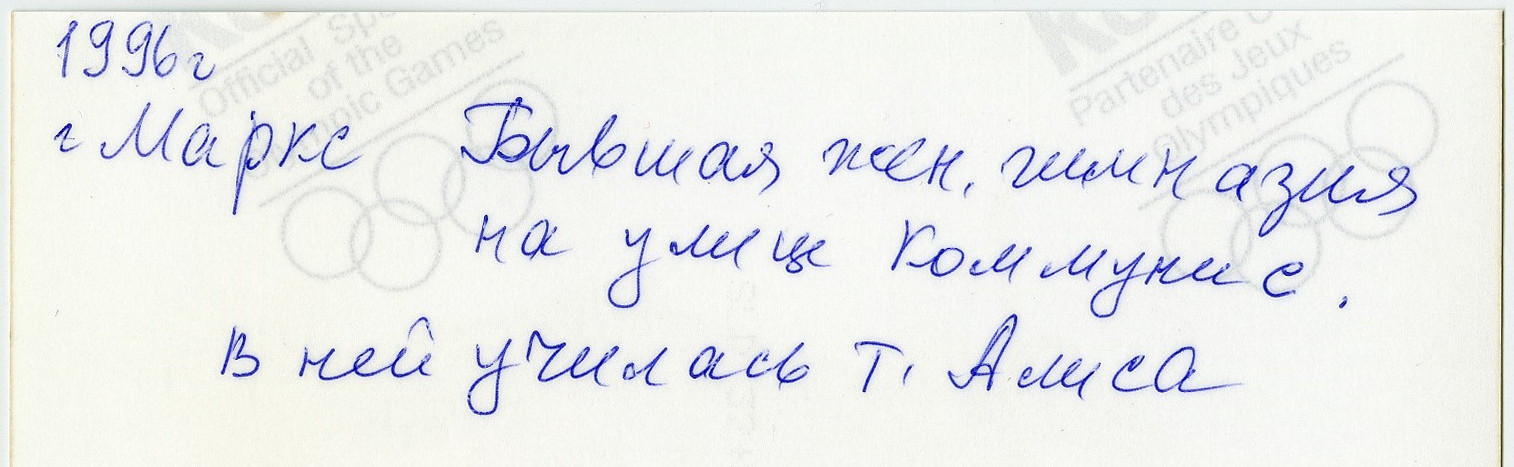 1996г
г Маркс Бывшая жен. гимназия
на улице Коммунис.
в ней училась т. Алиса
Official Sp
of the
Games
Partenaire
des Jeux
olympiques